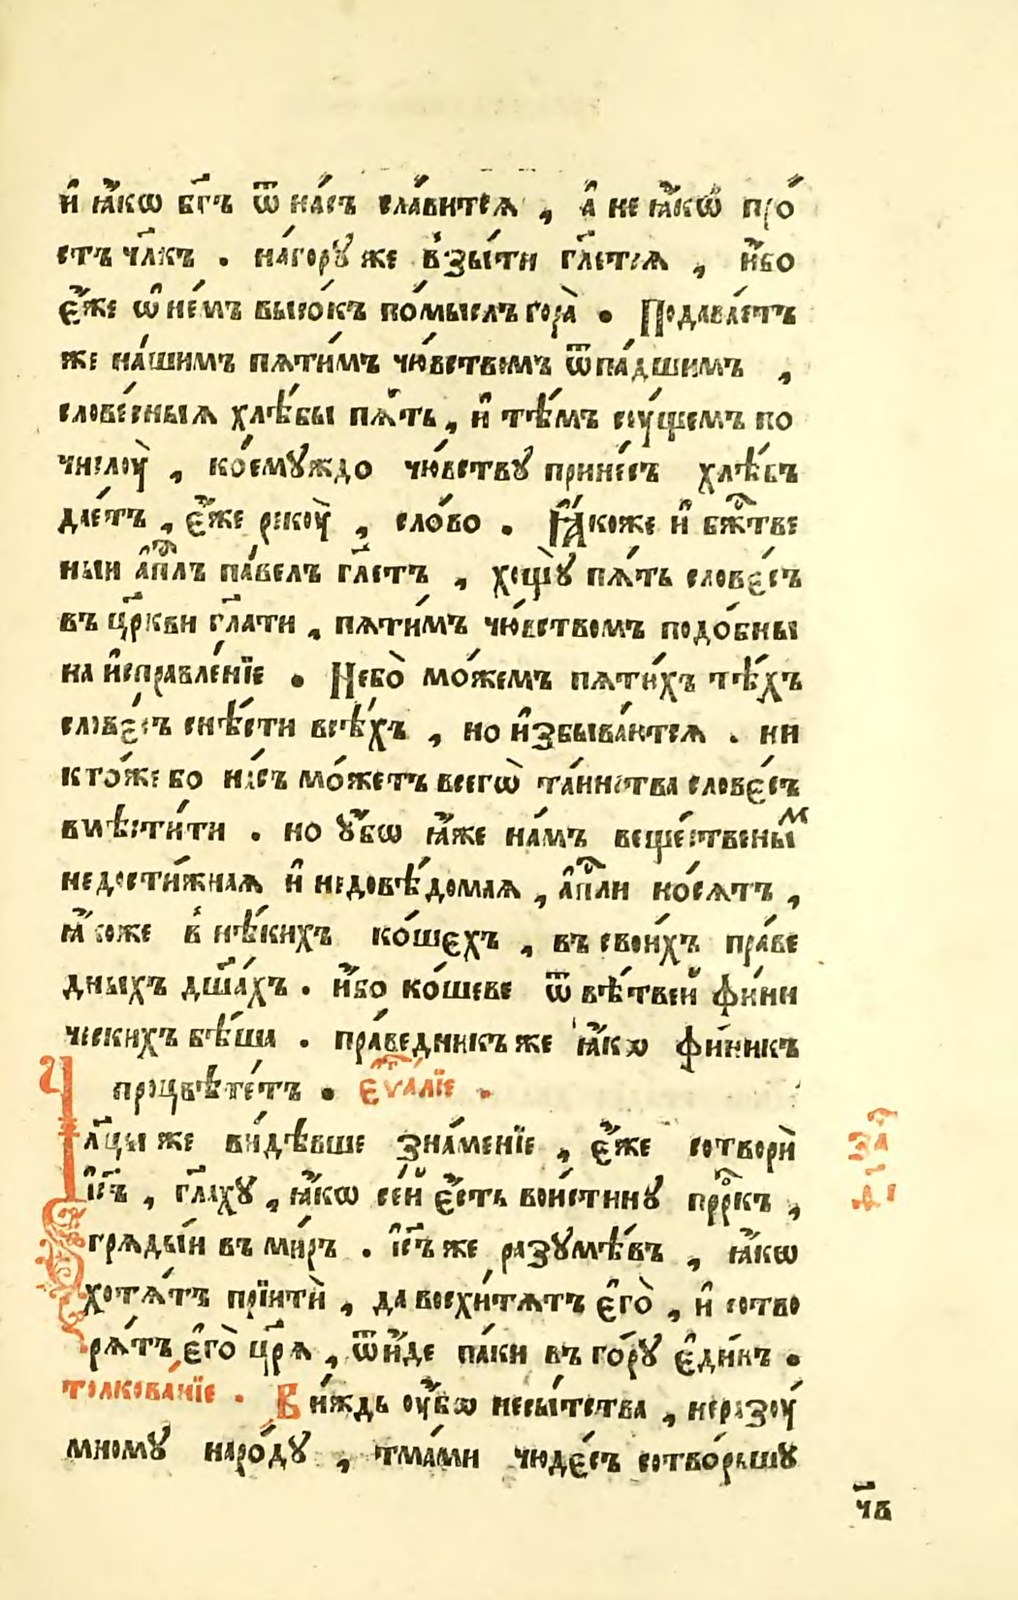 и҆ ꙗ҆́кѡ бг҃ъ ѿ на́съ сла́витсѧ , а҆ не ꙗ҆́кѡ про́
стъ чл҃къ . на́гору же в̾зы́ти гл҃етсѧ , и҆́бо
є҆́же ѡ҆ не́мъ высо́къ по́мыслъ гора̀ . Подава́етъ
же на́шимъ пѧти́мъ чю́вством ъ ѿпа́дшимъ ,
слове́сныѧ хлѣ́бы пѧ́ть , и҆ тѣ́мъ су́щемъ по
числоу̀ , коємꙋ́ждо чю́вствꙋ прине́съ хлѣ́бъ
дае́тъ , є҆́же рекоу̀ , сло́во . Ꙗ҆́коже и҆ бж҃тве
ныи а҆пл҃ъ па́велъ гл҃етъ , хощꙋ̀ пѧ́ть слове́съ
въ цр҃кви гл҃ати , пѧти́мъ чю́вствомъ подо́бны
на и҆справле́нїе . Небо̀ мо́жемъ пѧти́хъ тѣ́хъ
слове́съ снѣ́сти всѣ́хъ , но и҆збыва́ютсѧ . ни
кто́же бо на́съ мо́жетъ всегѡ̀ та́инства слове́съ
вмѣсти́ти . но ꙋ҆́бѡ ꙗ҆́же на́мъ веще́ствены м
недости́жнаѧ и҆ недовѣ́домаѧ , а҆пл҃и но́сѧтъ ,
ꙗ҆́коже в̾ нѣ́кихъ ко́шєхъ , въ свои́хъ пра́ве
дныхъ дш҃а́хъ . и҆́бо ко́шеве ѿ вѣ́твей фи́ни
ческихъ бѣ́ша . пра́ведникъ же ꙗ҆́кѡ фи́никъ
процвѣте́тъ . є҆ѵⷢ҇а́лїе .
Чл҃цы же ви́дѣвше зна́менїе , є҆́же сотворѝ
і҆с҃ъ , гл҃ахꙋ , ꙗ҆́кѡ се́й є҆́сть вои́стинꙋ прⷪ҇ркъ ,
грѧды́и въ ми́ръ . і҆с҃ъ же разꙋмѣ́въ , ꙗ҆́кѡ
хотѧ́тъ прїитѝ , да восхи́тѧтъ є҆го̀ , и҆ сотво
рѧ́тъ є҆го̀ цр҃ѧ , ѿи҆́де па́ки въ го́рꙋ є҆ди́нъ .
толкова́нїе . Ви́ждь оу҆́бѡ несы́тства , неразоу́
мномꙋ наро́дꙋ , тма́ми чюде́съ сотво́ршꙋ
за҃
д҃і
чв҃